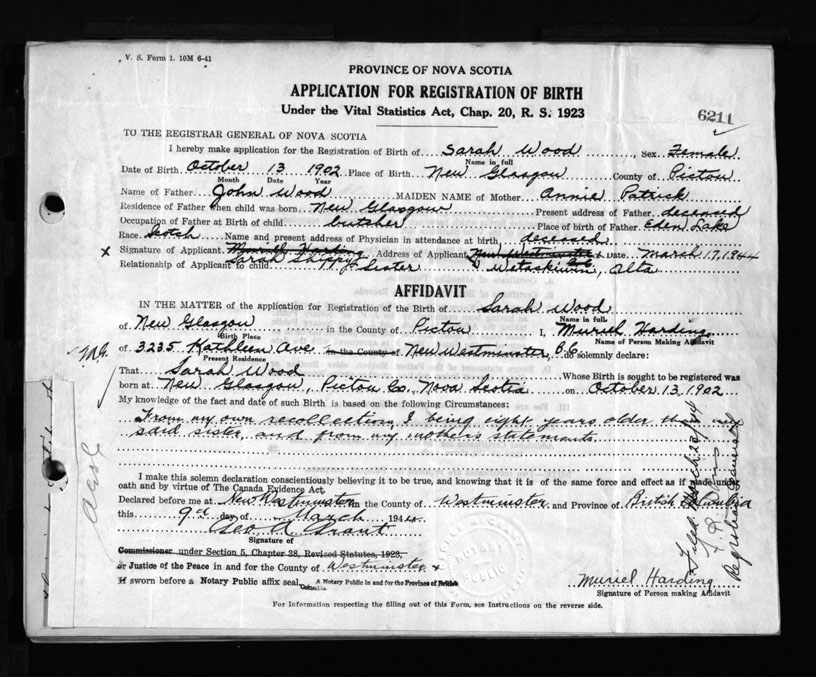 V. S. Form 1. 10M 6-41
PROVINCE OF NOVA SCOTIA
APPLICATION FOR REGISTRATION OF BIRTH
Under the Vital Statistics Act, Chap. 20, R. S. 1923
6211
TO THE REGISTRAR GENERAL OF NOVA SCOTIA
I hereby make application for the Registration of Birth of Sarah Wood, Sex Female
Name in full
Date of Birth October 13 1902 Place of Birth New Glasgow County of Pictou
Month Date Year
Name of Father John Wood MAIDEN NAME of Mother Annie Patrick
Residence of Father when child was born New Glasgow Present address of Father deceased
Occupation of Father at Birth of child butcher Place of birth of Father Eden Lake
Race Scotch Name and present address of Physician in attendance at birth deceased
x Signature of Applicant Muriel Harding Address of Applicant New Westminster B.C. Date March 17, 1944
Sarah Shippy Wetaskiwin, Alta
Relationship of Applicant to child Sister
AFFIDAVIT
IN THE MATTER of the application for Registration of the Birth of Sarah Wood
Name in full
of New Glasgow in the County of Pictou I, Muriel Harding
Birth Place Name of Person Making Affidavit
of 3235 Kathleen Ave in the County of New Westminster, B.C. do solemnly declare:
Present Residence
That Sarah Wood Whose Birth is sought to be registered was
born at New Glasgow, Pictou Co, Nova Scotia on October 13, 1902
My knowledge of the fact and date of such Birth is based on the following Circumstances:
From my own recollection, I being eight years older than my
said sister, and from my mothers statements
I make this solemn declaration conscientiously believing it to be true, and knowing that it is of the same force and effect as if made under
oath and by virtue of The Canada Evidence Act.
Declared before me at New Westminster in the County of Westminster, and Province of British Columbia
this 9th day of March 1944
Geo A. Grant
Signature of
Commissioner under Section 5, Chapter 38, Revised Statutes, 1923,
or Justice of the Peace in and for the County of Westminster
If sworn before a Notary Public affix seal. A Notary Public in and for the Province of British Columbia
Muriel Harding
Signature of Person making Affidavit
For Information respecting the filling out of this Form, see Instructions on the reverse side.
Filed March 23/44
Registrar General